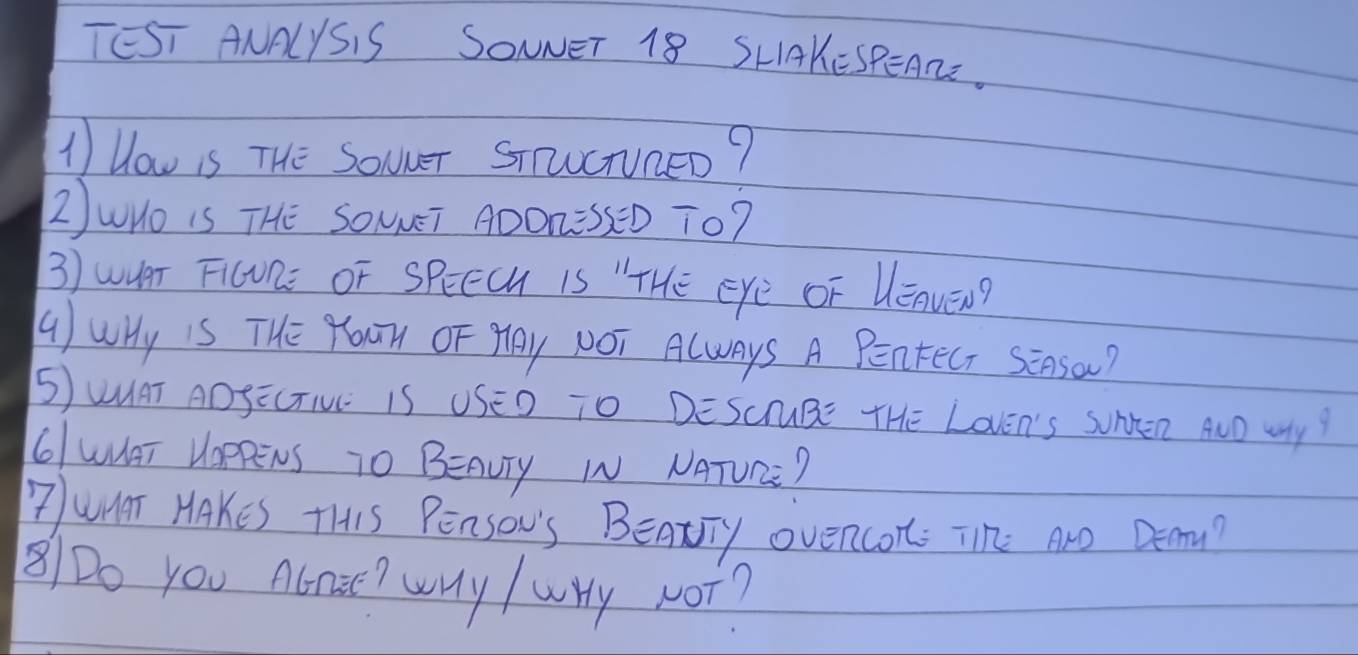 TEST ANALYSIS SONNET 18 SHAKESPEARE.
1) HOW IS THE SONNET STRUCTURED?
2) WHO IS THE SONNET ADDRESSED TO?
3) WHAT FIGURE OF SPEECH IS "THE EYE OF HEAVEN?
4) WHY IS THE MONTH OF MAY NOT ALWAYS A PERFECT SEASON?
5) WHAT ADJECTIVE IS USED TO DESCRIBE THE LOVER'S SUMMER AND WHY?
6) WHAT HAPPENS TO BEAUTY IN NATURE?
7) WHAT MAKES THIS PERSON'S BEAUTY OVERCOME TIME AND DEATH?
8) DO YOU AGREE? WHY / WHY NOT?